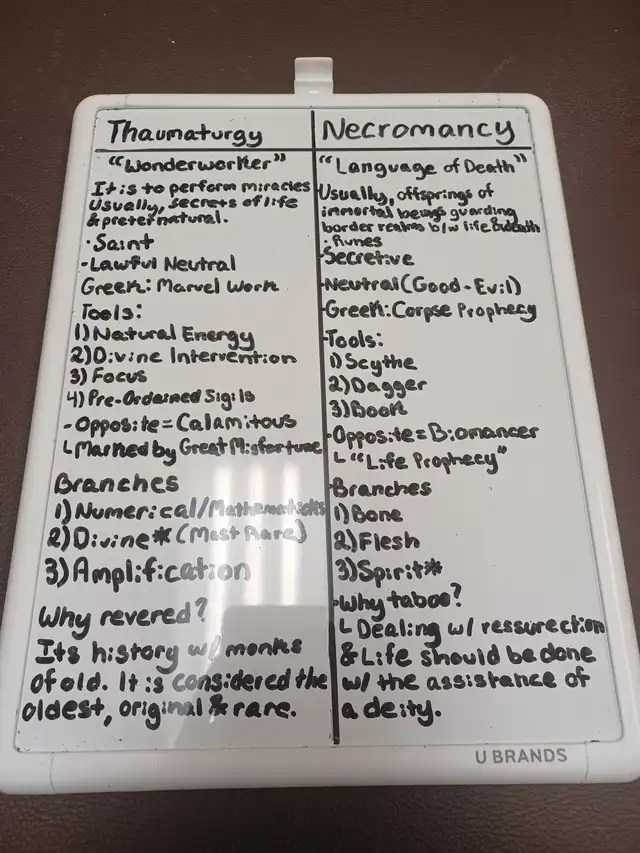 Thaumaturgy
"Wonderworker"
It is to perform miracles
Usually, secrets of life
& preternatural.
·Saint
-Lawful Neutral
Greek: Marvel Work
Tools:
1) Natural Energy
2) Divine Intervention
3) Focus
4) Pre-Ordained Sigils
-Opposite = Calamitous
└ Marked by Great Misfortune
Branches
1) Numerical/Mathematicks
2) Divine* (Most Rare)
3) Amplification
Why revered?
Its history w/ monks
of old. It is considered the
oldest, original & rare.
Necromancy
"Language of Death"
Usually, offsprings of
immortal beings guarding
border realms b/w life & death
·Runes
-Secretive
-Neutral (Good-Evil)
-Greek: Corpse Prophecy
-Tools:
1) Scythe
2) Dagger
3) Book
-Opposite = Biomancer
└ "Life Prophecy"
-Branches
1) Bone
2) Flesh
3) Spirit*
-Why taboo?
└ Dealing w/ ressurection
& Life should be done
w/ the assistance of
a deity.
U BRANDS